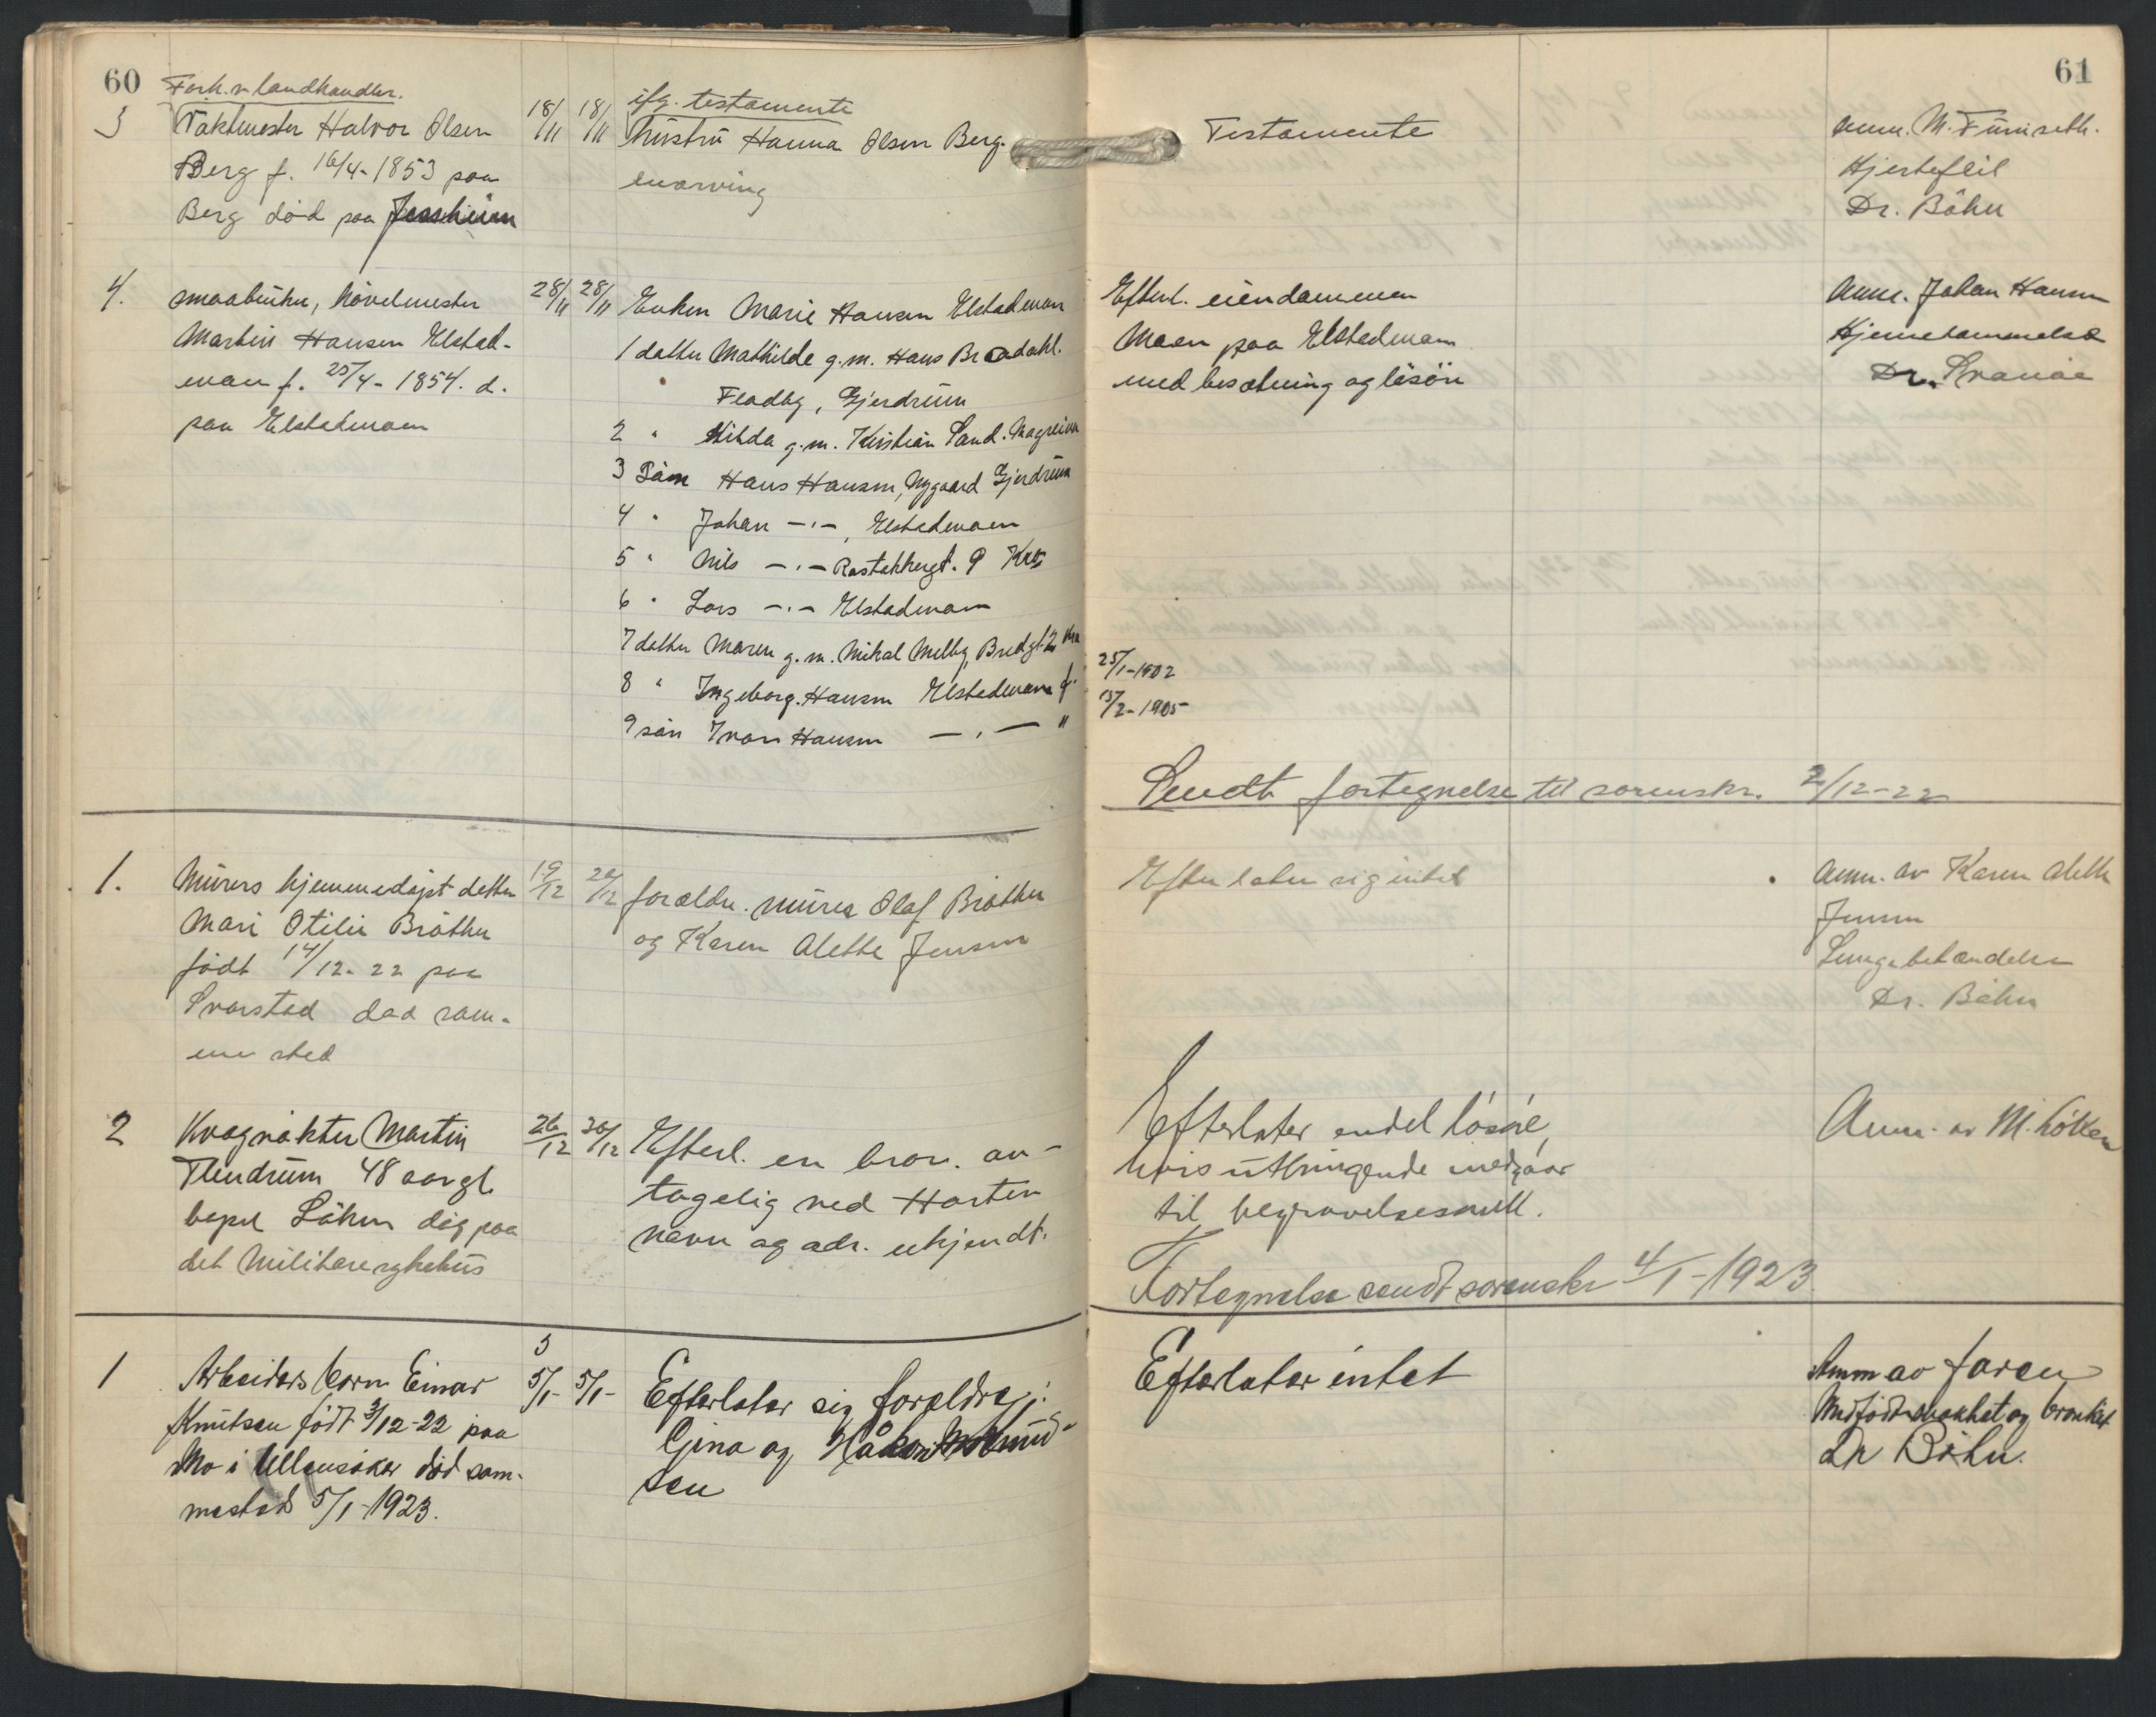 60
Forh. v landhandler.
3 Taktmester Halvor Olsen 18/11 18/11
Berg f. 16/4-1853 paa
Berg död paa Jessheim
ifg. testamente
hustru Hanna Olsen Berg.
enarving
4. smaabruker, hövelmester 28/11 28/11
Martin Hansen Elstad-
moen f. 25/4-1854. d.
paa Elstadmoen
Enken Marie Hansen Elstadmoen
1 datter Mathilde g.m. Hans Bradahl.
Fladby, Gjerdrum
2 " Hilda g.m. Kristian Sand.
3 Sön Hans Hansen, Nygaard Gjerdrum
4 " Johan -"-, Elstadmoen
5 " Nils -"- 9
6 " Lars -"- Elstadmoen
7 datter Maren g.m. Mikal Melby, Bredgt. 2
8 " Ingeborg Hansen Elstadmoen f.
9 sön Ivar Hansen -"- "
1. Murers hjemmedöpt datter 19/12 20/12
Mari Otilie Bråthen
födt 14/12-22 paa
Svarstad död sam-
me sted
foreldre. murer Olaf Bråthen
og Karen Alette Jensen
2 Kvægrökter Martin 26/12 30/12
48 aar gl.
Löken dög paa
det Militære sykehus
Efterl. en bror. an-
tagelig ved Horten
navn og adr. ukjendt.
1 Arbeiders barn Einar 5/1- 5/1-
Knutsen født 3/12-22 paa
Mo i Ullensaker död sam-
mested 5/1-1923.
Efterlater sig foreldre:
Gina og Håkon
sen
61
Testamente
anm. M. Furuseth.
Hjertefeil
Dr. Böhn
Efterl. eiendommen
Moen paa Elstadmoen
med besætning og lösöre
Anm. Johan Hansen
Dr.
25/1-1902
15/2-1905
Sendt fortegnelse til sorenskr. 2/12-22
Efterlater sig intet
Anm. av Karen Alette
Jensen
Lungebetændelse
Dr. Böhn
Efterlater endel lösöre,
hvis utbringende medgaar
til begravelsesomk.
Anm. av M. Löken
Fortegnelse sendt sorenskr 4/1-1923.
Efterlater intet
Anm av faren
Medfödt svakhet og bronkit
Dr Böhn.